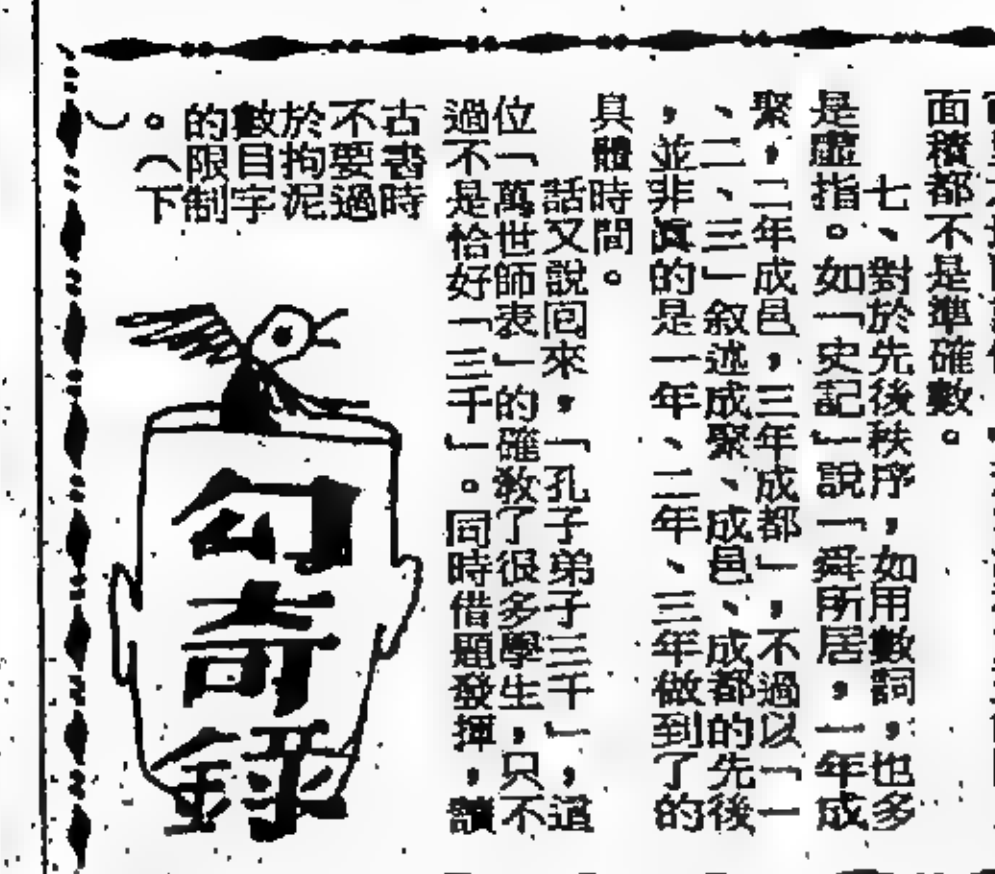 面積都不是準確數。
七、對於先後秩序，如用數詞，也多
是虛指。如「史記」說「舜所居，一年成
聚，二年成邑，三年成都」，不過以「一
、二、三」敘述成聚、成邑、成都的先後
，並非眞的是一年、二年、三年做到了的
具體時間。
話又說囘來，「孔子弟子三千」，這
位「萬世師表」的確敎了很多學生，只不
過不是恰好「三千」。同時借題發揮，讀
古書時
不要過
於拘泥
數目字
的限制
。（下
）
勾奇錄